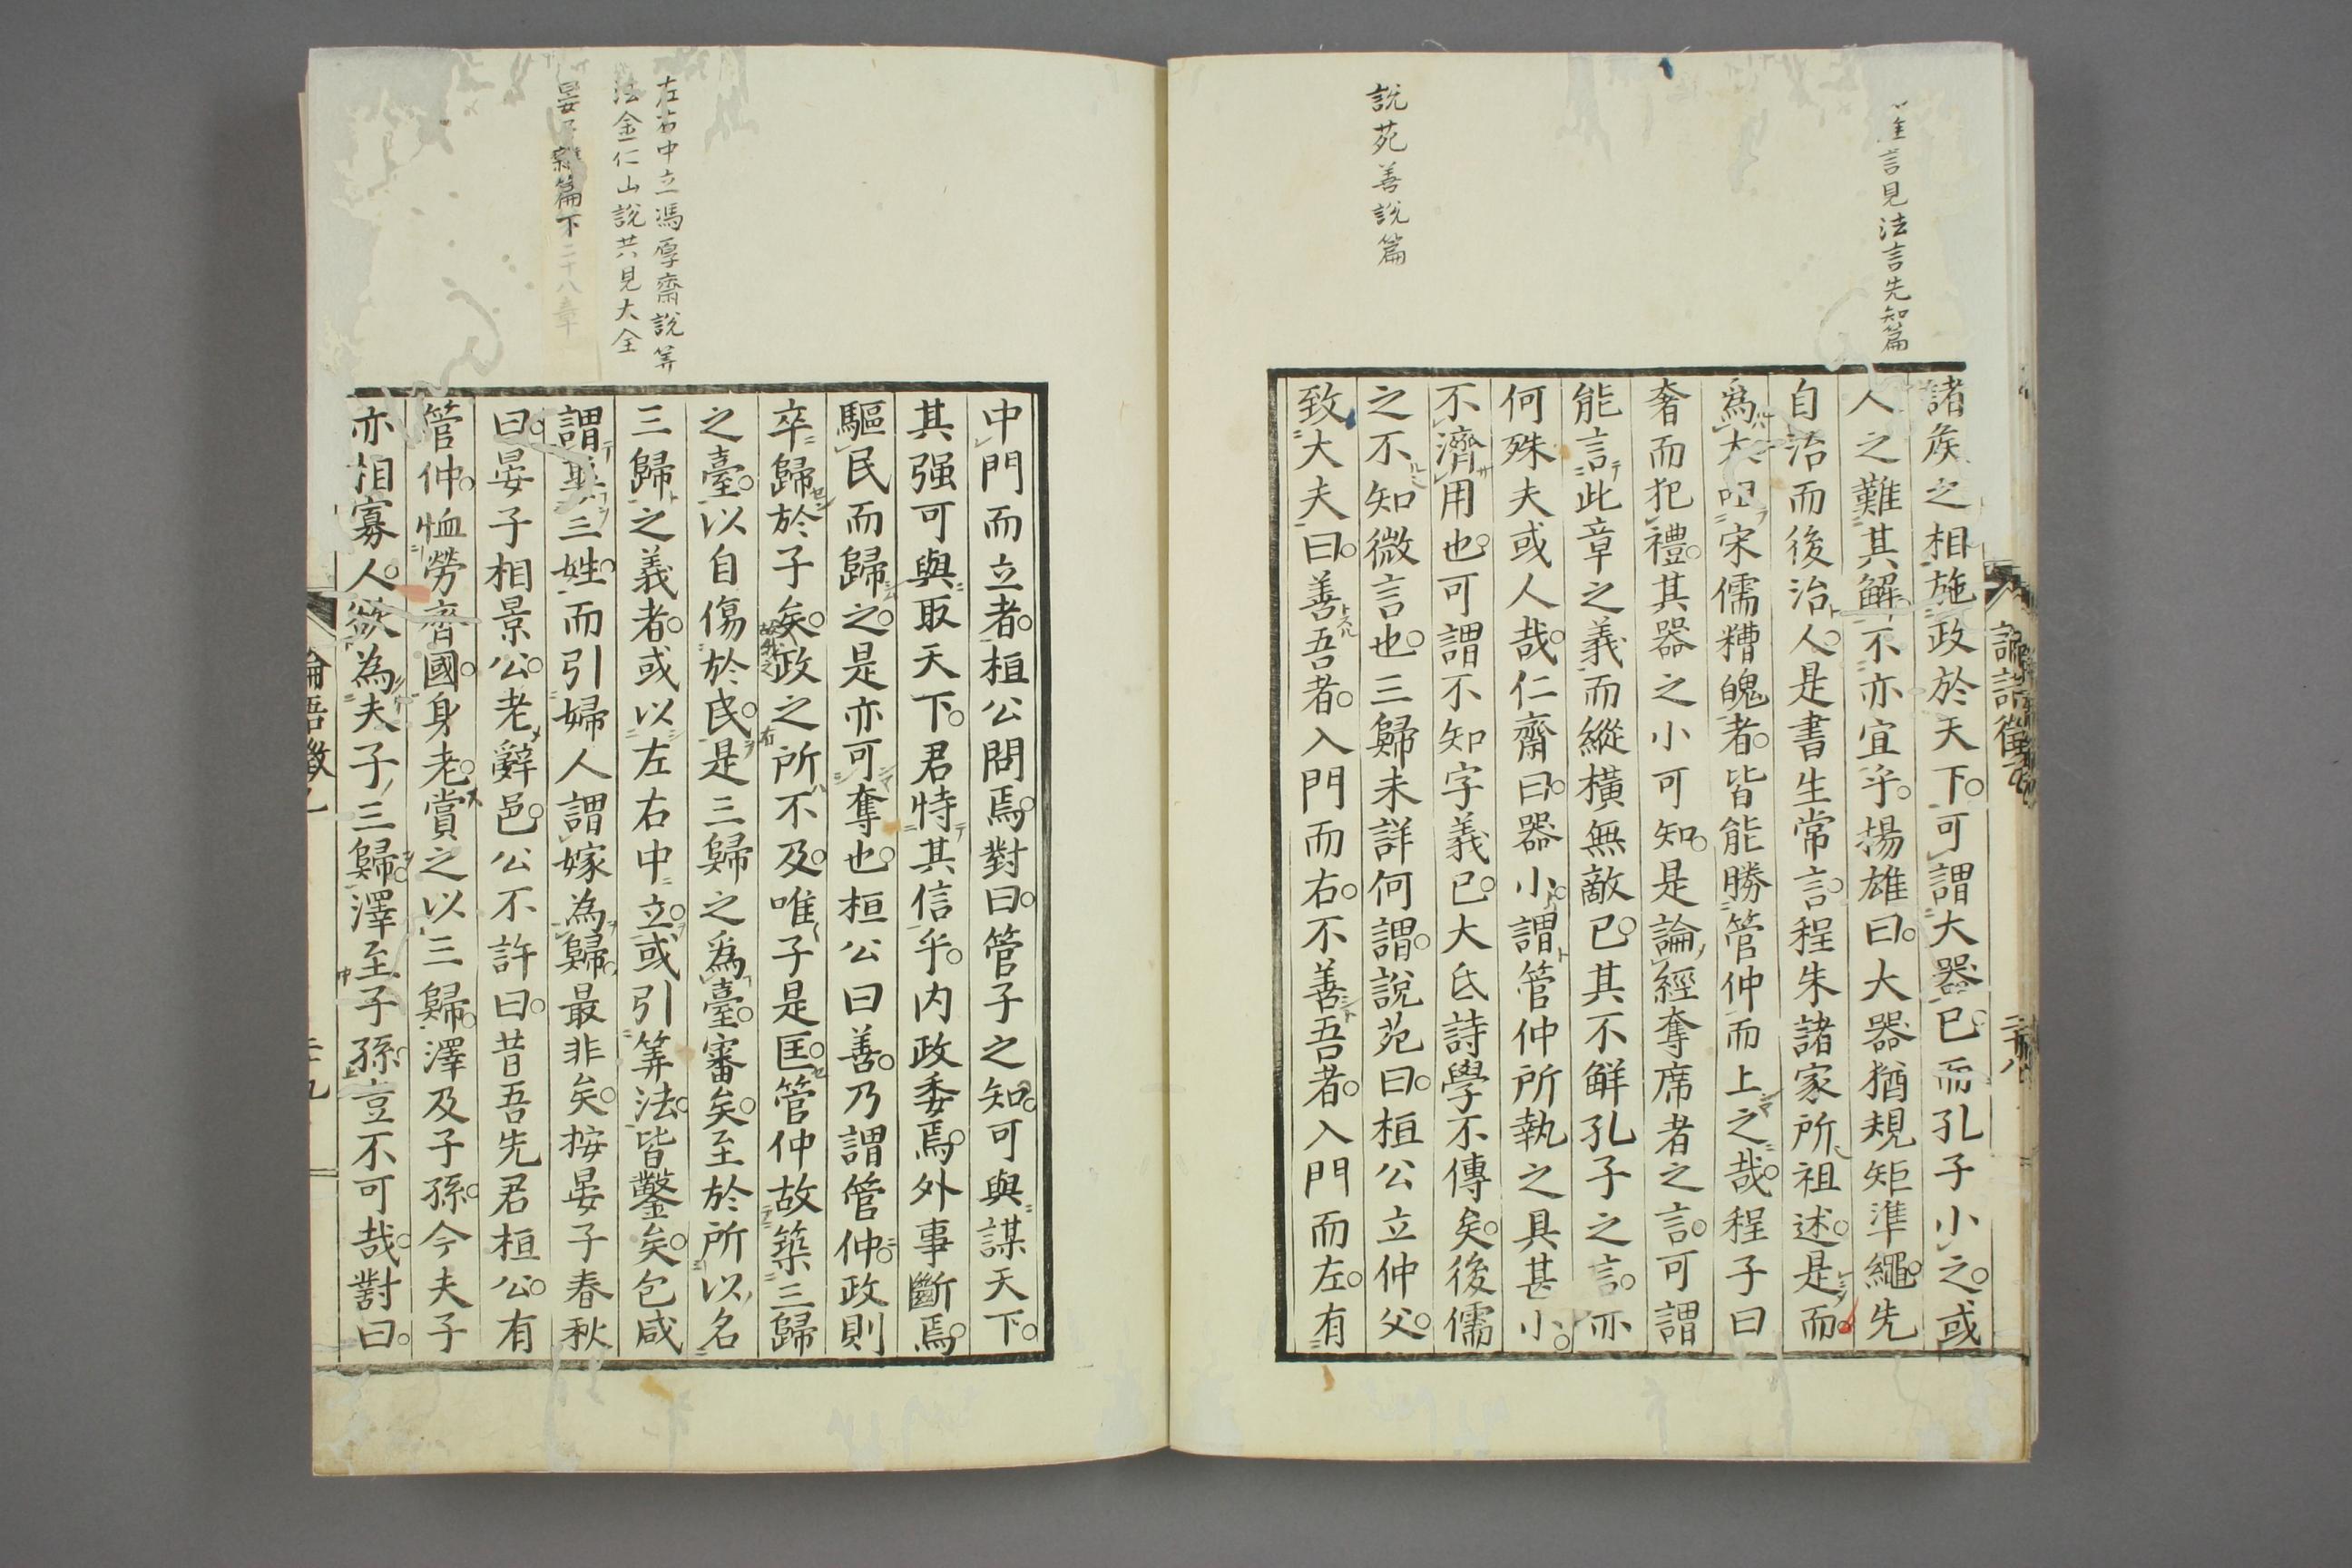 言見法言先知篇
說苑善說篇
諸矦之相施政於天下可謂大器已而孔子小之或
人之難其解不亦宜乎揚雄曰大器猶規矩準繩先
自治而後治人是書生常言程朱諸家所祖述是而
爲大則宋儒糟魄者皆能勝管仲而上之哉程子曰
奢而犯禮其器之小可知是論經奪席者之言可謂
能言此章之義而縱橫無敵已其不鮮孔子之言亦
何殊夫或人哉仁齋曰器小謂管仲所執之具甚小
不濟用也可謂不知字義已大氐詩學不傳矣後儒
之不知微言也三歸未詳何謂說苑曰桓公立仲父
致大夫曰善吾者入門而右不善吾者入門而左有
左右中立馮厚齋說筭
法金仁山說共見大全
晏子雜篇下二十八章
中門而立者桓公問焉對曰管子之知可與謀天下
其强可與取天下君恃其信乎内政委焉外事斷焉
驅民而歸之是亦可奪也桓公曰善乃謂管仲政則
卒歸於子矣政之所不及唯子是匡管仲故築三歸
之臺以自傷於民是三歸之爲臺審矣至於所以名
三歸之義者或以左右中立或引筭法皆鑿矣包咸
謂娶三姓而引婦人謂嫁為歸最非矣按晏子春秋
曰晏子相景公老辭邑公不許曰昔吾先君桓公有
管仲恤勞齊國身老賞之以三歸澤及子孫今夫子
亦相寡人欲為夫子三歸澤至子孫豈不可哉對曰